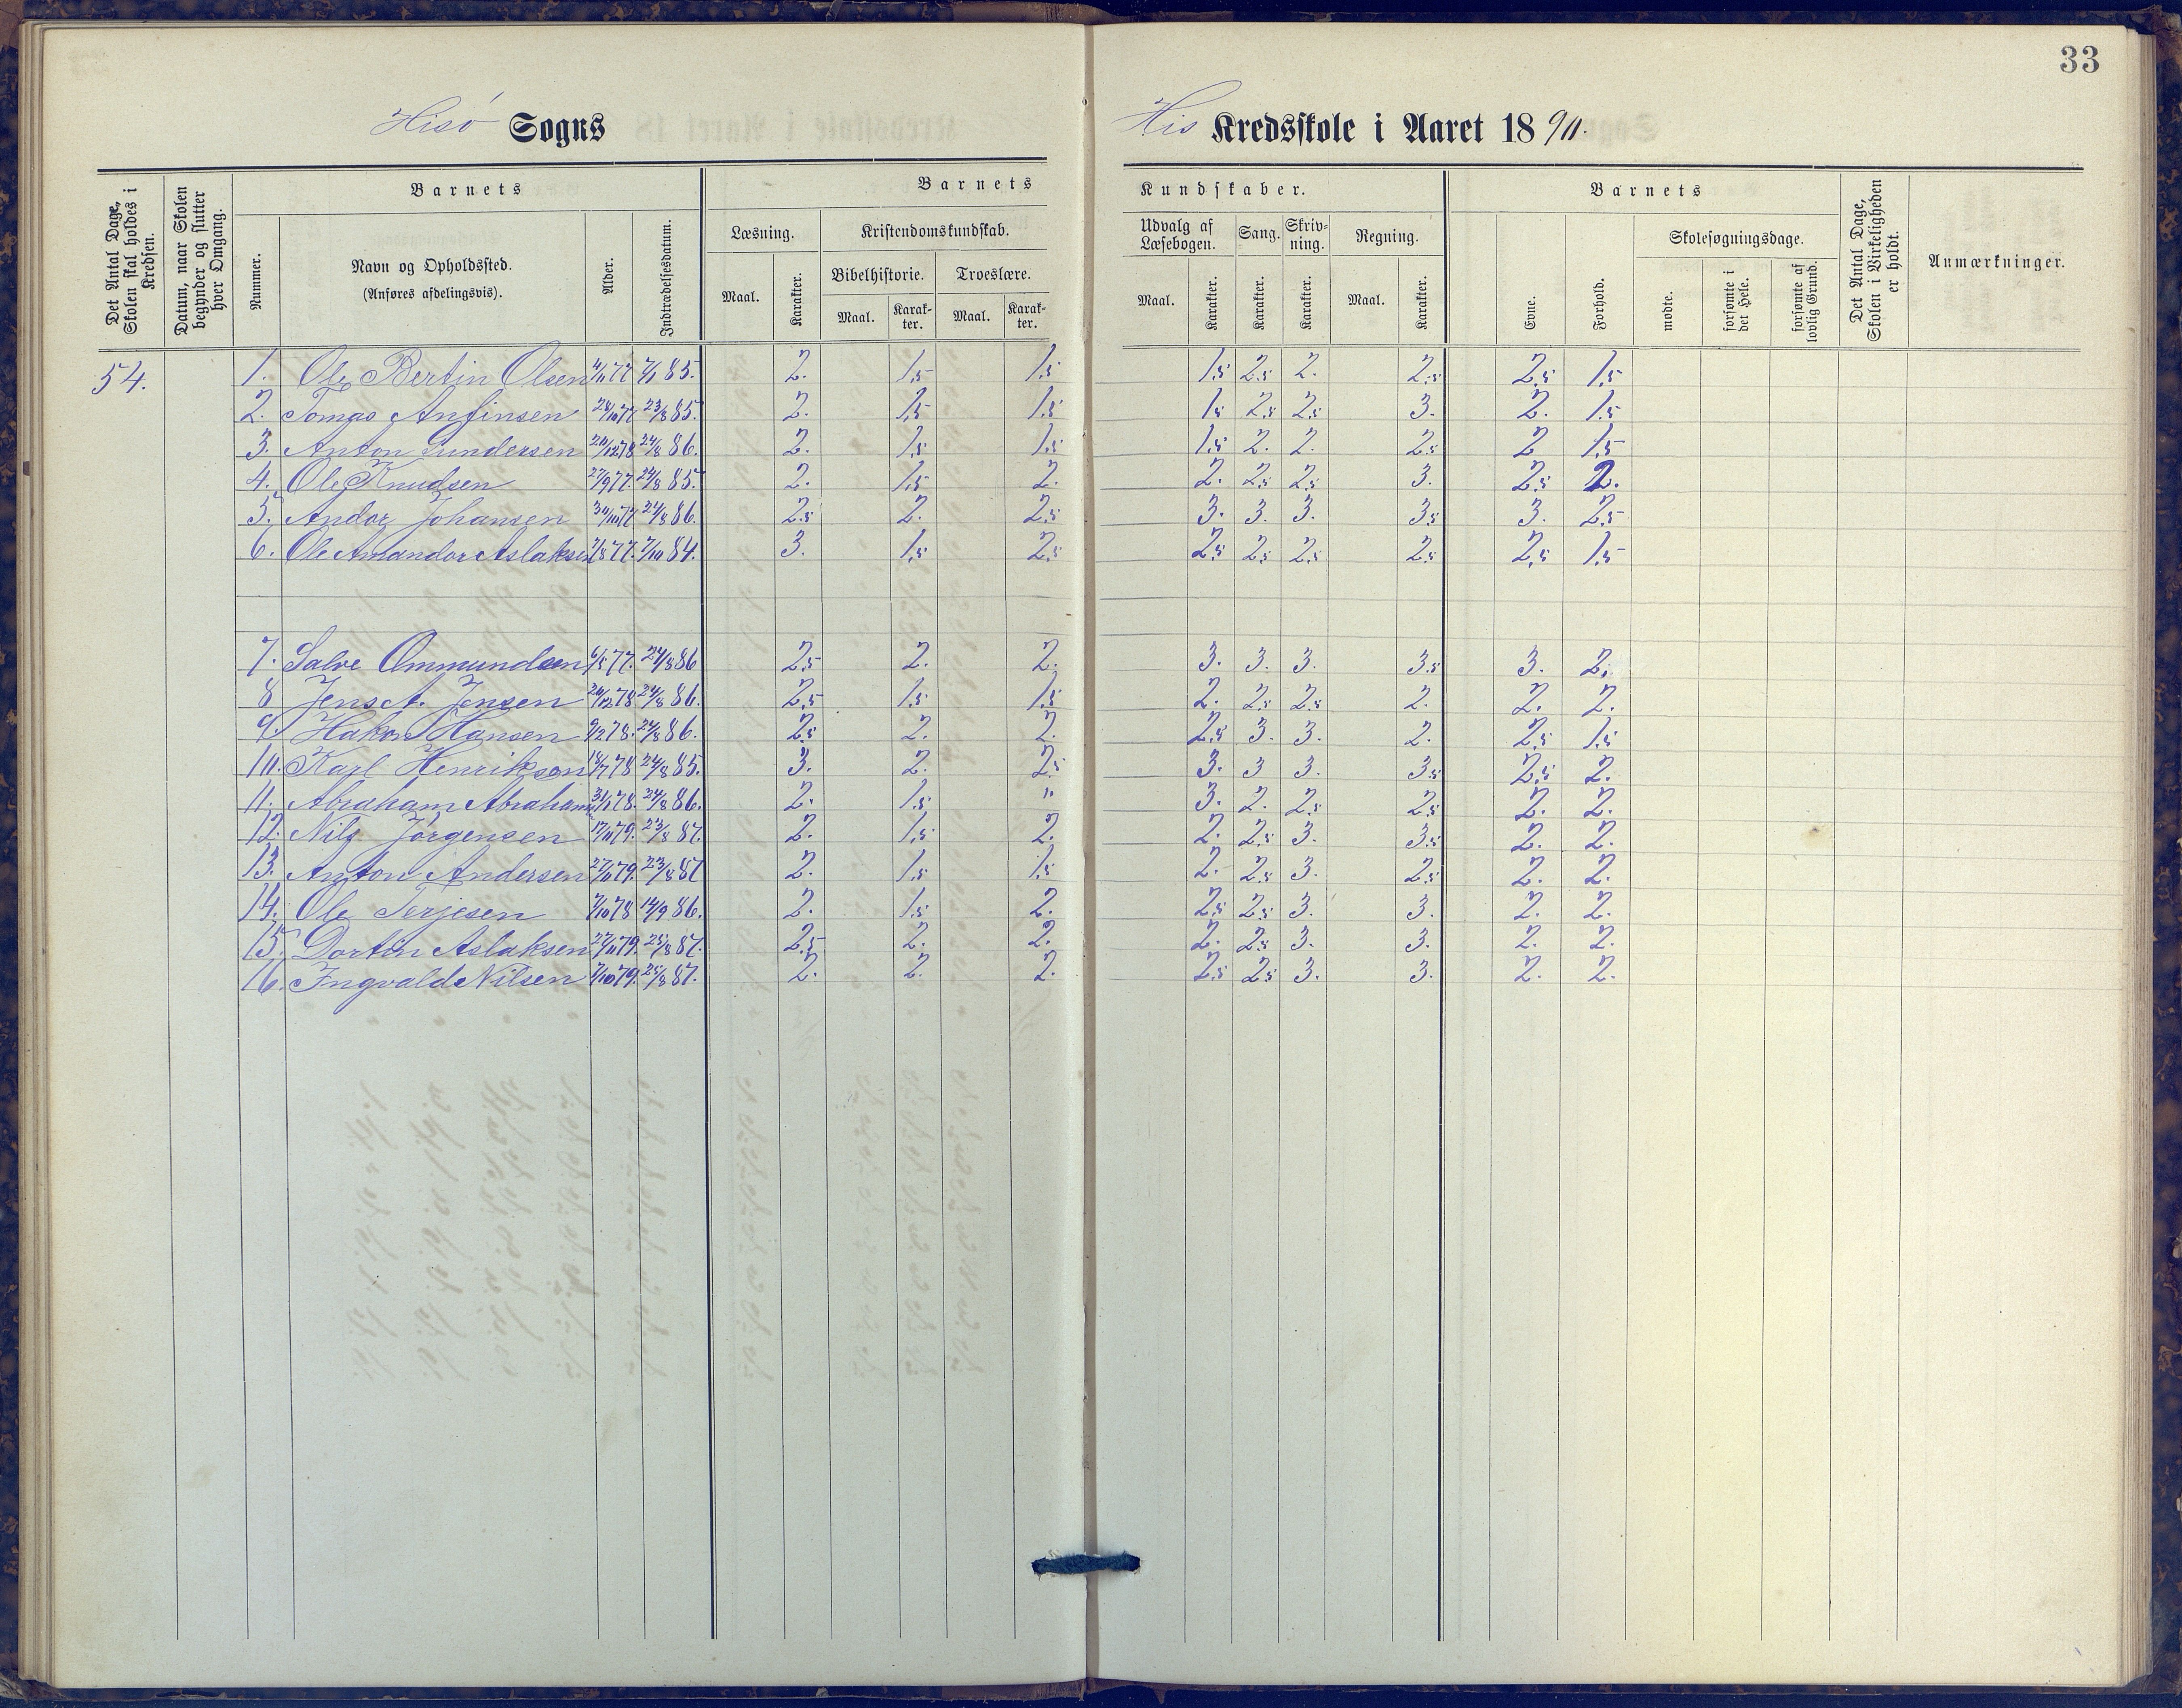 33
Hisö Sogns His Kredsskole i Aaret 1890.
Det Antal Dage, Skolen skal holdes i Kredsen.
Datum, naar Skolen begynder og slutter hver Omgang.
Barnets
Nummer.
Navn og Opholdssted.
(Anføres afdelingsvis).
Alder.
Indtrædelsesdatum.
Barnets Kundskaber.
Læsning.
Karakter.
Maal.
Kristendomskundskab.
Bibelhistorie.
Maal.
Karak-
ter.
Troeslære.
Maal.
Karak-
ter.
Udvalg af
Læsebogen.
Maal.
Karakter.
Sang.
Karakter.
Skriv-
ning.
Karakter.
Regning.
Maal.
Karakter.
Barnets
Evne.
Forhold.
Skolesøgningsdage.
mødte.
forsømte i det Hele.
forsømte af lovlig Grund.
Det Antal Dage, Skolen i Virkeligheden er holdt.
Anmærkninger.
54.
1. Ole Bertin Olsen 77 85. 2. 1,5 1,5 1,5 2,5 2. 2,5 2,5 1,5
2. Tomas Anfinsen 28/10 77 23/8 85. 2. 1,5 1,5 1,5 2,5 2,5 3. 2. 1,5
3. Anton Gundersen 78 24/8 86. 2. 1,5 1,5 1,5 2. 2. 2,5 2 1,5
4. Ole Knudsen 27/9 77. 24/8 85. 2. 1,5 2. 2. 2,5 2,5 3. 2,5 2.
5. Andor Johansen 30/10 77 24/8 86. 2,5 2. 2,5 3. 3. 3. 3,5 3. 2,5
6. Ole Amandor Aslaksen 7/8 77. 7/10 84. 3. 1,5 2,5 2,5 2,5 2,5 2,5 2,5 1,5
7. Salve Ommundsen 6/5 77. 24/8 86 2,5 2. 2. 3. 3. 3. 3,5 3. 2.
8 Jens A. Jensen 20/12 78 24/8 86. 2,5 1,5 1,5 2. 2,5 2,5 2. 2. 2.
9. Hakon Hansen 9/2 78. 24/8 86. 2,5 2. 2. 2,5 3. 3. 2. 2,5 1,5
10. Karl Henriksen 18/7 78 24/8 85. 3. 2. 2,5 3. 3 3. 3,5 2,5 2.
11. Abraham Abrahams 31/1 78. 24/8 86. 2. 1,5 " 3. 2. 2,5 2,5 2. 2.
12. Nils Jörgensen 17/11 79. 23/8 87. 2. 1,5 2. 2. 2,5 3. 3,5 2. 2.
13. Anton Andersen 27/11 79. 23/8 87 2. 1,5 1,5 2. 2,5 3. 2,5 2. 2.
14. Ole Terjesen 7/10 78 14/9 86. 2. 1,5 2. 2,5 2,5 3. 3. 2. 2.
15. Dortin Aslaksen 27/11 79. 25/8 87. 2,5 2. 2. 2. 2,5 3. 3. 2. 2.
16. Ingvald Nilsen 7/10 79. 25/8 87. 2. 2. 2. 2,5 2,5 3. 3. 2. 2.